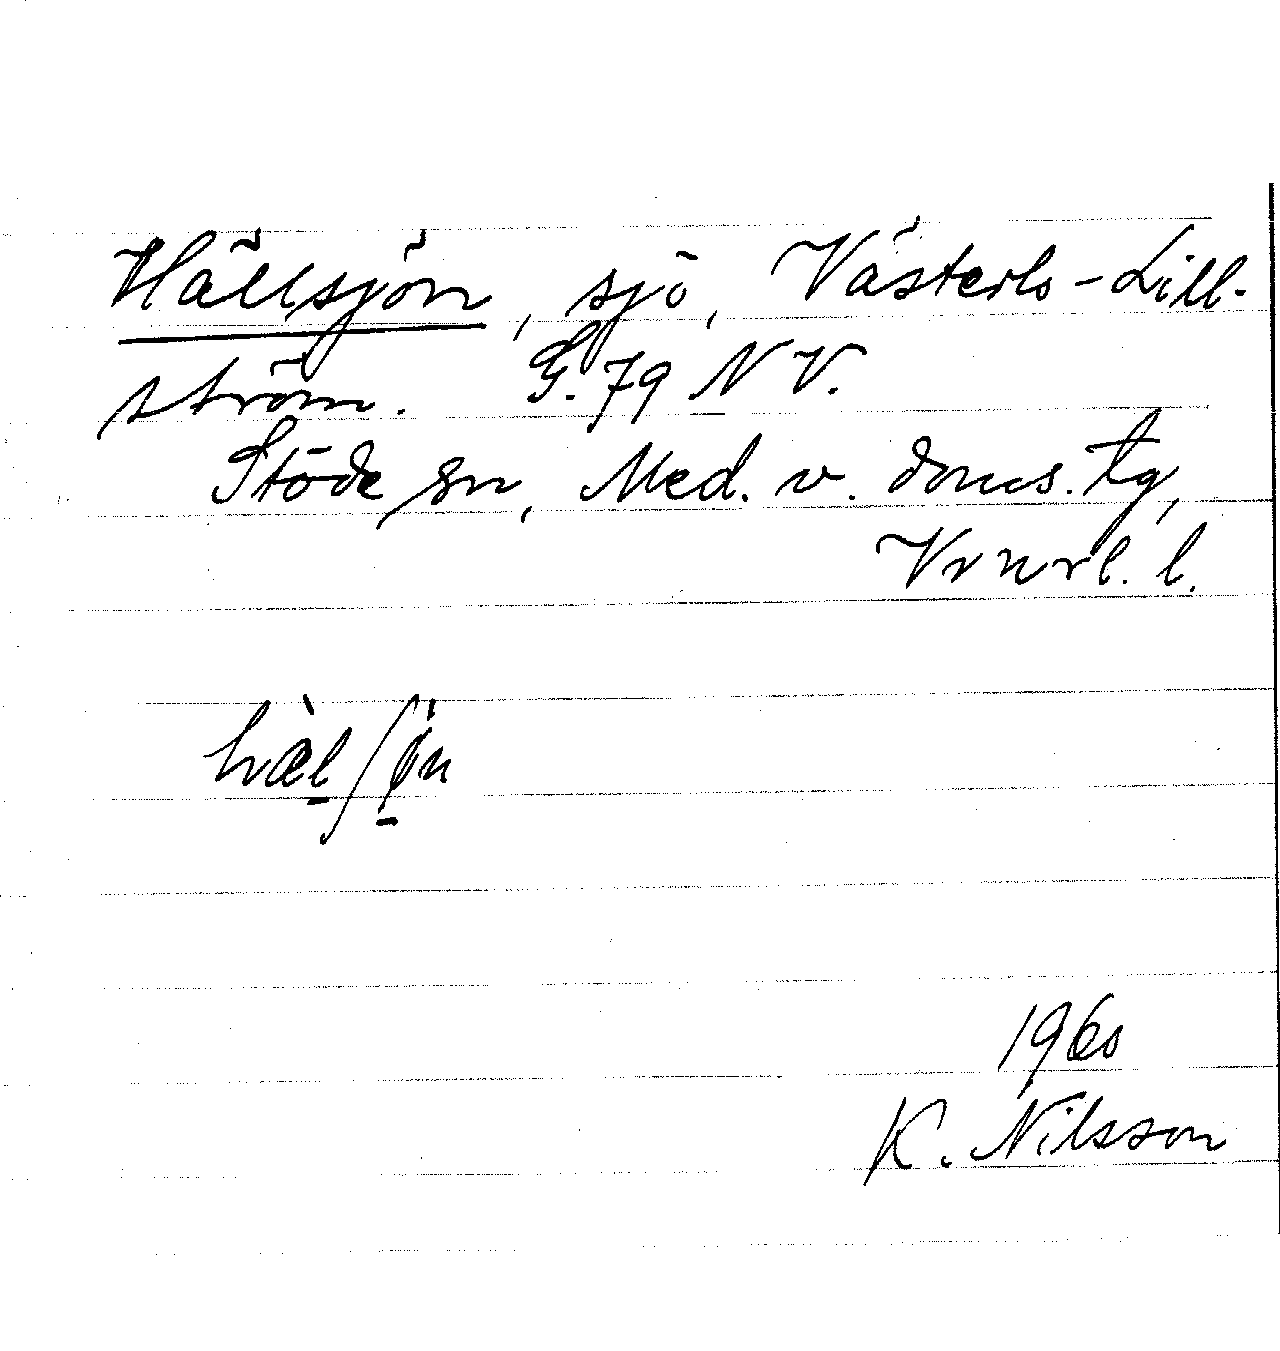 Hällsjön, sjö, Västerlo-Lill-
ström. G. 79 NV.
Stöde sn, Med. v. doms. tg,
Vrnrl. l.
hæ̀l ʃø̀n
1960
K. Nilsson